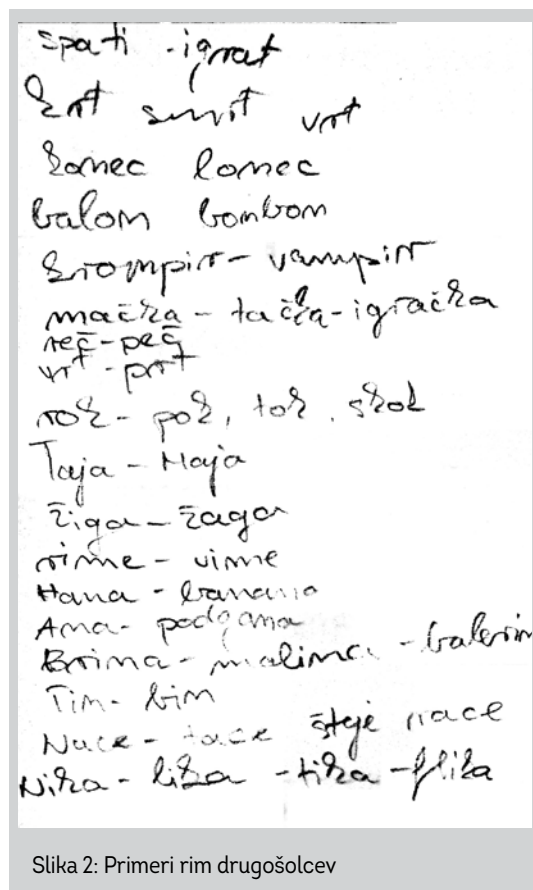 spati - igrat
krt smrt vrt
konec lonec
balon bonbon
krompir - vampir
mačka - tačka - igračka
reč - peč
vrt - prt
rok - pok, tok, skok
Taja - Maja
žiga - žaga
rime - vime
Hana - banana
Ana - podgana
Brina - malina - balerin
Tim - bim
Nace - tace šteje race
Nika - lika - tika - flika
Slika 2: Primeri rim drugošolcev